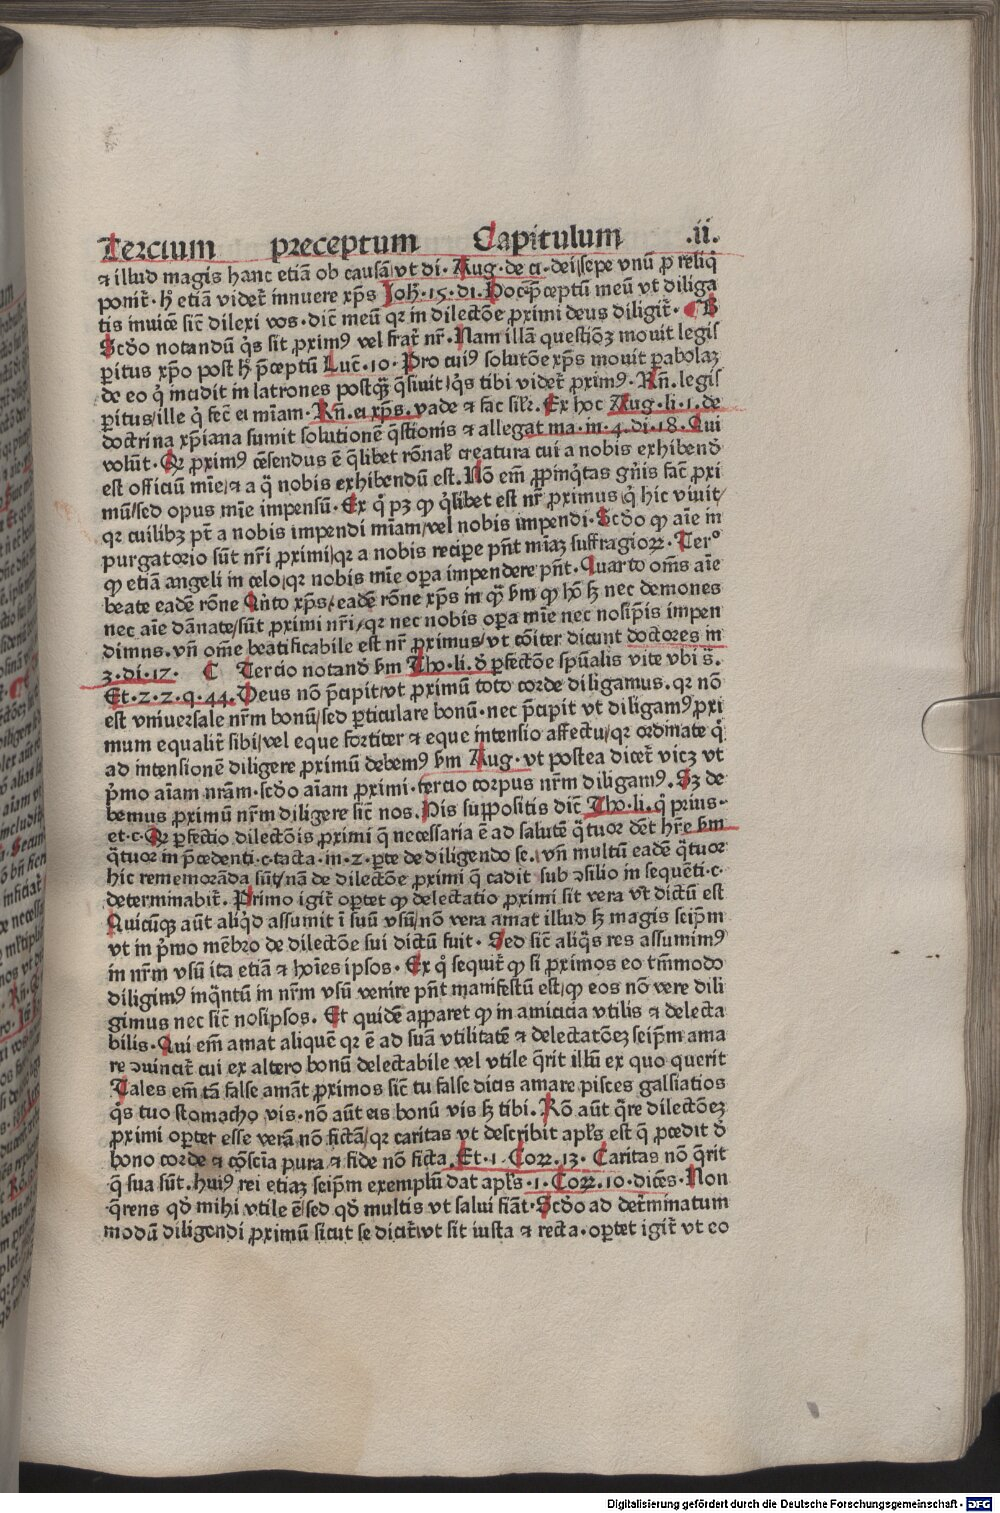 Tercium preceptum Capitulum .ii.
⁊ illud magis hanc etiã ob causã/vt di· Aug· de ci· dei/sepe vnũ ꝓ reliq̃
ponit̃· hͦ etiã videt̃ innuere xp̃s Joh̃·15·di· Hoc p̃ceptũ meũ vt diliga
tis inuicẽ sic̃t dilexi vos· dic̃t meũ qr in dilectõe ꝓximi deus diligit̃· B
Sc̃do notandũ q̇s sit ꝓximꝰ vel frat̃ nr̃· Nam illã questiõꝫ mouit legis
ꝑitus xp̃o post hͦ p̃ceptũ Luc̃·10· Pro cuiꝰ solutõe xp̃s mouit ꝑabolaꝫ
de eo q̇ incidit in latrones postq̃ꝫ q̃siuit/q̇s tibi videt̃ ꝓximꝰ· Rñ· legis
ꝑitus/ille q̇ fec̃t ei mĩam· Rñ· ei xp̃s· vade ⁊ fac sil̃r· Ex hoc Aug· li·1·de
doctrina xp̃iana sumit solutionẽ q̃stionis ⁊ allegat ma· in·4·di·18· Qui
volũt· Qꝫ ꝓximꝰ cẽsendus ẽ q̃libet rõnał creatura cui a nobis exhibend̃
est officiũ mĩe/⁊ a q̃ nobis exhibendũ est· Nõ em̃ ꝓpinq̃tas gñis fac̃t ꝓxi
mũ/sed opus mĩe impensũ· Ex q̊ pꝫ ꝙ q̇libet est nr̃ ꝓximus/q̇ hic viuit/
qr cuilibꝫ pt̃ a nobis impendi mĩam/vel nobis impendi· Sc̃do ꝙ aĩe in
purgatorio sũt nr̃i ꝓximi/qr a nobis reciꝑe pñt mĩaꝫ suffragioꝝ· Terº
ꝙ etiã angeli in celo/qr nobis mĩe oꝑa impendere pñt· Quarto om̃s aĩe
beate eadẽ rõne Qñto xp̃s/eadẽ rõne xp̃s in q̃ꝫ ẜm ꝙ hõ sꝫ nec demones
nec aĩe dãnate/sũt ꝓximi nr̃i/qr nec nobis oꝑa mĩe nec nosip̃is impen
dimus· vñ om̃e beatificabile est nr̃ ꝓximus/vt cõiter dicunt doctores in
3·di·17· C Tercio notand̃ ẜm Tho·li·d̃ ꝑfectõe spũalis vite vbi s̃·
Et·2·2·q·44· Deus nõ p̃cipit/vt ꝓximũ toto corde diligamus· qr nõ
est vniuersale nr̃m bonũ/sed ꝑticulare bonũ· nec p̃cipit vt diligamꝰ ꝓxi
mum equalit̃ sibi/vel eque fortiter ⁊ eque intensio affectu/qr ordinate q̊
ad intensionẽ diligere ꝓximũ debemꝰ ẜm Aug· vt postea dicet̃ vicꝫ vt
p̃mo aĩam nrãm· sc̃do aĩam ꝓximi· tercio corpus nr̃m diligamꝰ· Sꝫ de
bemus ꝓximũ nr̃m diligere sic̃t nos· His suppositis dic̃t Tho·li·q̊ prius·
et·c· Qꝫ ꝑfectio dilectõis ꝓximi q̃ necessaria ẽ ad salutẽ q̃tuor det̃ hr̃e ẜm
q̃tuor in p̃cedenti·c·tacta·in·2·ꝑte de diligendo se· vñ multũ eadẽ q̃tuor
hic rememorãda sũt/nã de dilectõe ꝓximi q̃ cadit sub ꝯsilio in sequẽti·c·
determinabit̃· Primo igit̃ oꝑtet ꝙ delectatio ꝓximi sit vera vt dictũ est
Quicũqꝫ aũt aliq̇d assumit ĩ suũ vsũ/nõ vera amat illud sꝫ magis seip̃m
vt in p̃mo mẽbro de dilectõe sui dictũ fuit· Sed sic̃t aliq̃s res assumimꝰ
in nr̃m vsũ ita etiã ⁊ hoĩes ipsos· Ex q̊ sequit̃ ꝙ si ꝓximos eo tm̃modo
diligimꝰ inq̃ntũ in nr̃m vsũ venire pñt manifestũ est/ꝙ eos nõ vere dili
gimus nec sic̃t nosipsos· Et quidẽ apparet ꝙ in amicicia vtilis ⁊ delecta
bilis· Qui em̃ amat aliquẽ qr ẽ ad suã vtilitatẽ ⁊ delectatõeꝫ seip̃m ama
re ꝯuincit̃ cui ex altero bonũ delectabile vel vtile q̃rit illũ ex quo querit
Tales em̃ tã false amãt ꝓximos sic̃t tu false dicis amare pisces galsiatios
q̃s tuo stomacho vis· nõ aũt eis bonũ vis sꝫ tibi· Rõ aũt q̃re dilectõeꝫ
ꝓximi oꝑtet esse verã nõ fictã/qr caritas vt describit apl̃s est q̃ ꝓcedit d̃
bono corde ⁊ cõscĩa pura ⁊ fide nõ ficta· Et·1·Coꝝ·13· Caritas nõ q̃rit
q̃ sua sũt· huiꝰ rei etiaꝫ seip̃m exemplũ dat apl̃s·1·Coꝝ·10·dicẽs· Non
q̃rens qd̃ mihi vtile ẽ/sed qd̃ multis vt salui fiãt· Sc̃do ad det̃minatum
modũ diligendi ꝓximũ sicut se dicit̃/vt sit iusta ⁊ recta· oꝑtet igit̃ vt eo
Digitalisierung gefördert durch die Deutsche Forschungsgemeinschaft - DFG